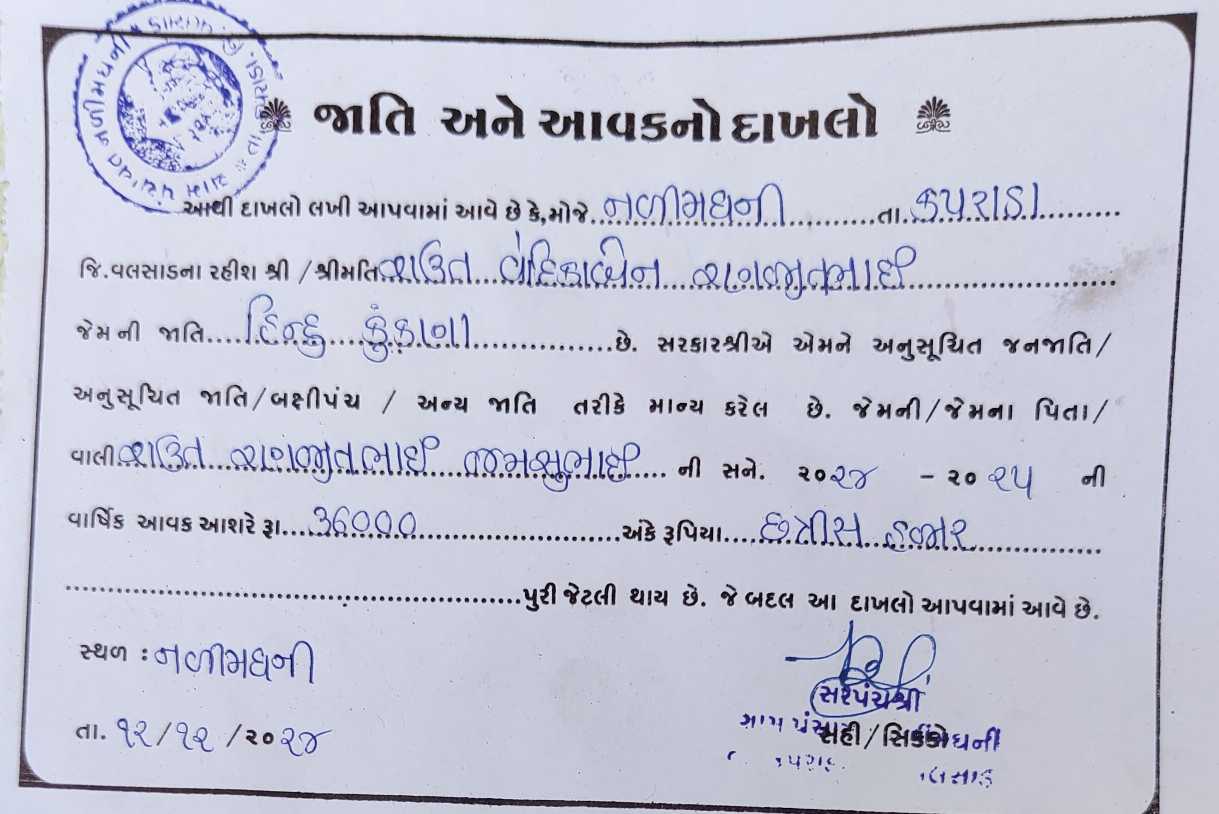 જાતિ અને આવકનો દાખલો
આથી દાખલો લખી આપવામાં આવે છે કે,મોજે..નળીમધની............તા..કપરાડા..........
જિ.વલસાડના રહીશ શ્રી /શ્રીમતિ રાઉત...વેદિકાબેન....રણજીતભાઈ.........................
જેમની જાતિ....હિન્દુ....કુંકણા...............છે. સરકારશ્રીએ એમને અનુસૂચિત જનજાતિ/
અનુસૂચિત જાતિ/બક્ષીપંચ / અન્ય જાતિ તરીકે માન્ય કરેલ છે. જેમની/જેમના પિતા/
વાલી રાઉત...રણજીતભાઈ....જમસુભાઈ.... ની સને. ૨૦૨૪ - ૨૦ ૨૫ ની
વાર્ષિક આવક આશરે રૂા...36000.......................અંકે રૂપિયા....છત્રીસ..હજાર...............
....................................................પુરી જેટલી થાય છે. જે બદલ આ દાખલો આપવામાં આવે છે.
સ્થળ : નળીમધની
સરપંચશ્રી
ગ્રામ પંચા
સહી/સિક્કો
ધની
તા. ૧૨/૧૨ /૨૦૨૪